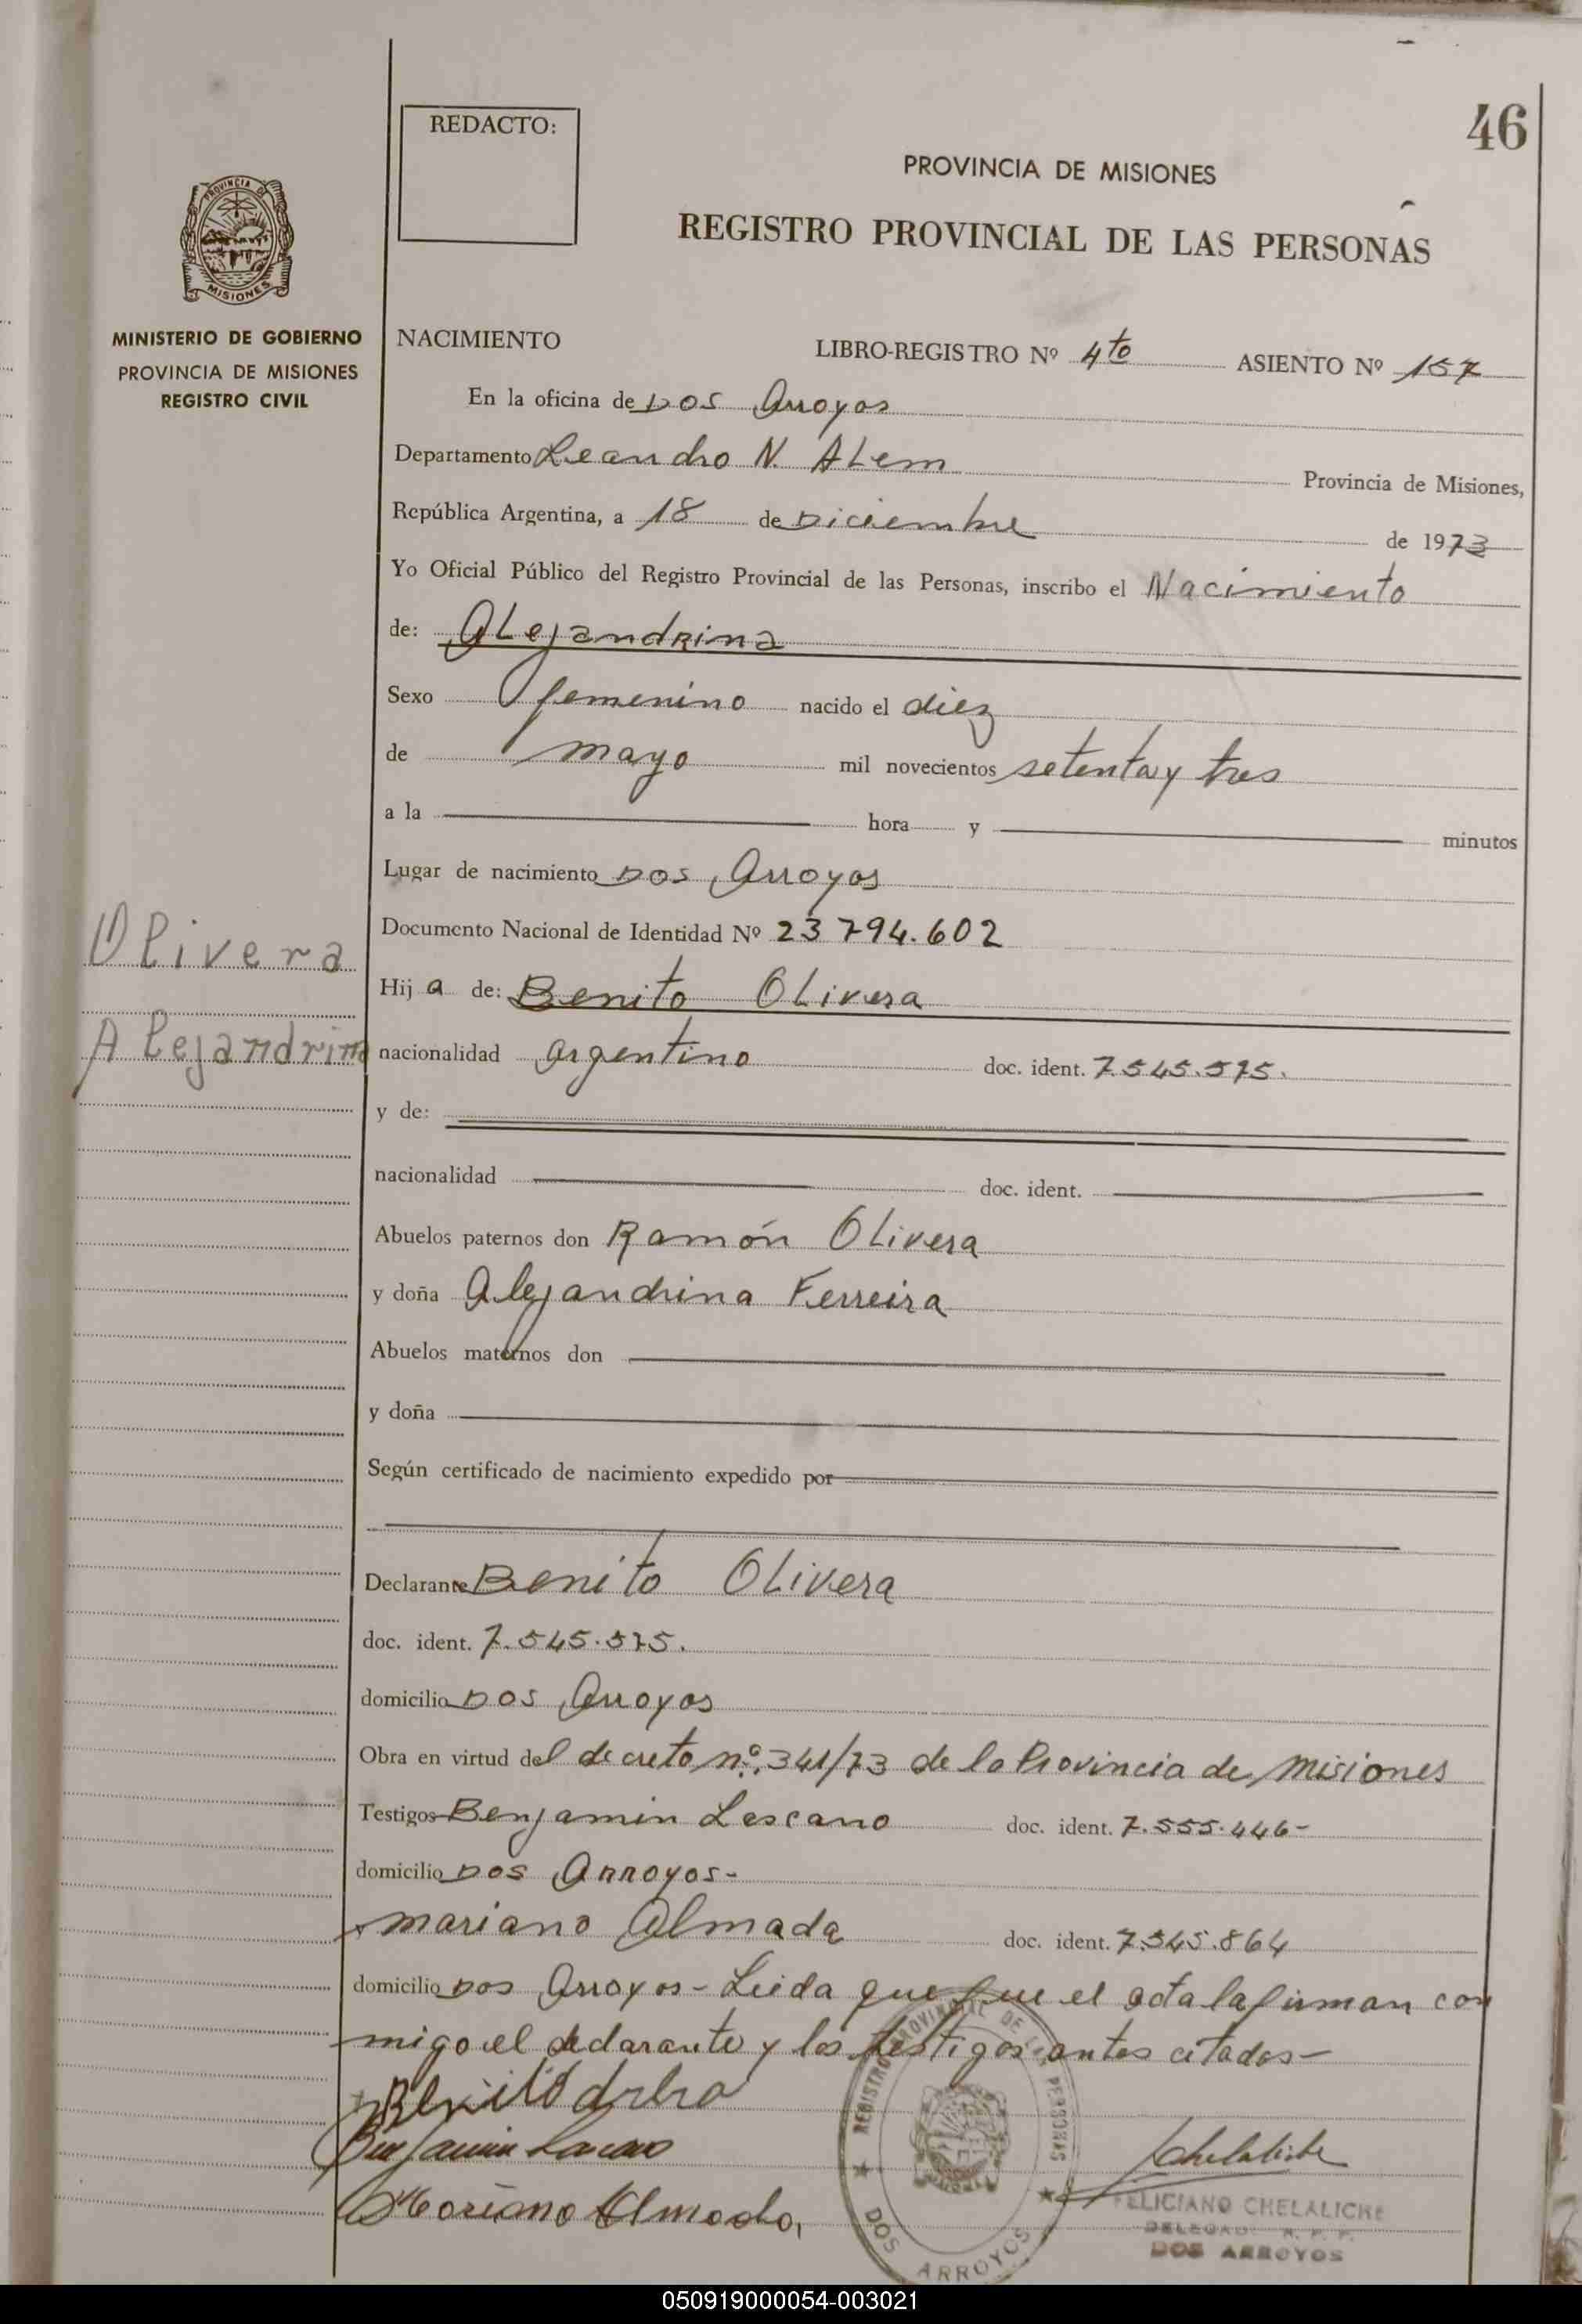 46
REDACTO:
PROVINCIA DE MISIONES
REGISTRO PROVINCIAL DE LAS PERSONAS
PROVINCIA DE
MISIONES
MINISTERIO DE GOBIERNO
PROVINCIA DE MISIONES
REGISTRO CIVIL
NACIMIENTO LIBRO-REGISTRO Nº 4to ASIENTO Nº 157
En la oficina de Dos Arroyos
Departamento Leandro N. ALem Provincia de Misiones,
República Argentina, a 18 de Diciembre de 1973
Yo Oficial Público del Registro Provincial de las Personas, inscribo el Nacimiento
de: ALejandrina
Sexo femenino nacido el diez
de mayo mil novecientos setenta y tres
a la hora y minutos
Lugar de nacimiento Dos Arroyos
Documento Nacional de Identidad Nº 23794.602
Olivera
Hij a de: Benito OLivera
Alejandrina
nacionalidad argentino doc. ident. 7.545.575.
y de:
nacionalidad doc. ident.
Abuelos paternos don Ramón OLivera
y doña Alejandrina Ferreira
Abuelos maternos don
y doña
Según certificado de nacimiento expedido por
Declarante Benito OLivera
doc. ident. 7.545.575.
domicilio Dos Arroyos
Obra en virtud del decreto nº. 341/73 de la Provincia de Misiones
Testigos Benjamin Lescano doc. ident. 7.555.446-
domicilio Dos Arroyos-
mariano Almada doc. ident. 7.545.864
domicilio Dos Arroyos- Leida que fue el acta la firman con
migo el declarante y los testigos antes citados-
Benjamin Lescano
Mariano Almada
Chelaliche
REGISTRO PROVINCIAL DE LAS PERSONAS
DOS ARROYOS
FELICIANO CHELALICHE
DELEGADO R. P. P.
DOS ARROYOS
050919000054-003021